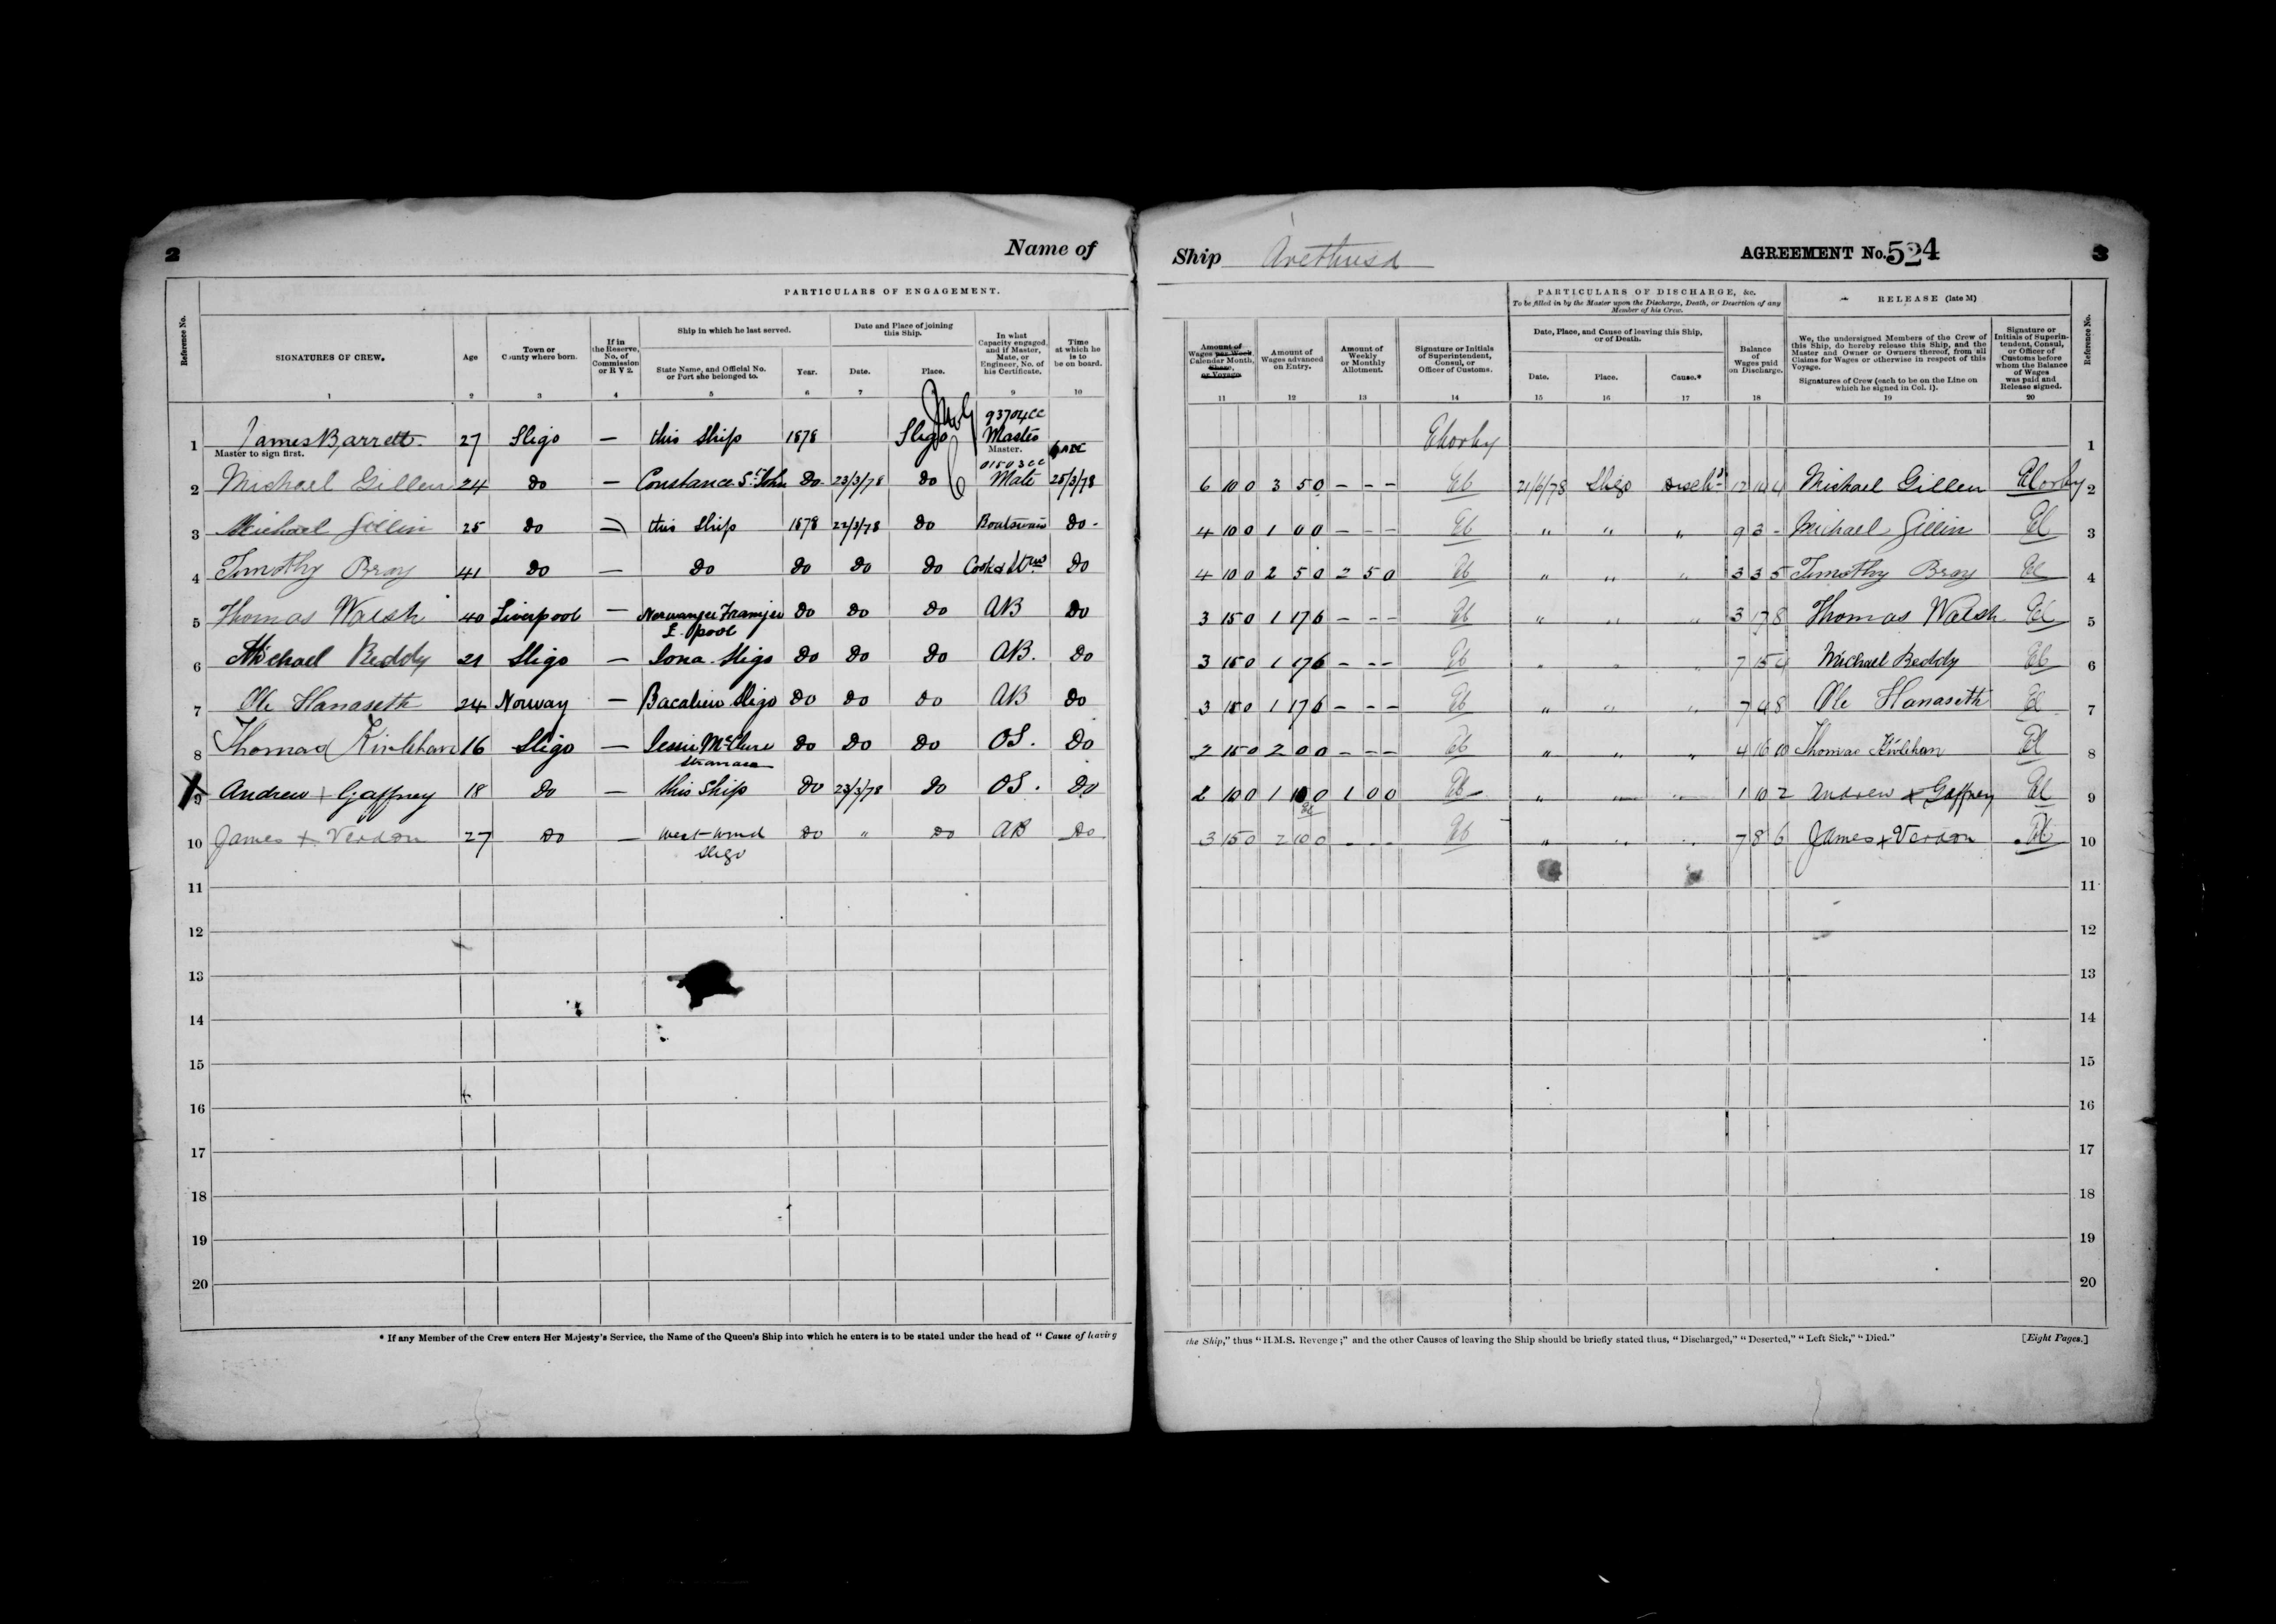 2 Name of
Ship Arethusa AGREEMENT No. 524 3
PARTICULARS OF ENGAGEMENT.
PARTICULARS OF DISCHARGE, &c.
To be filled in by the Master upon the Discharge, Death, or Desertion of any Member of his Crew.
RELEASE (late M)
Reference No.
SIGNATURES OF CREW.
Age
Town or County where born.
If in the Reserve, No. of Commission or R V 2.
Ship in which he last served.
State Name, and Official No. or Port she belonged to.
Year.
Date and Place of joining this Ship.
Date.
Place.
In what Capacity engaged, and if Master, Mate, or Engineer, No. of his Certificate.
Time at which he is to be on board.
Amount of Wages per Week, Calendar Month, Share, or Voyage.
Amount of Wages advanced on Entry.
Amount of Weekly or Monthly Allotment.
Signature or Initials of Superintendent, Consul, or Officer of Customs.
Date, Place, and Cause of leaving this Ship, or of Death.
Date.
Place.
Cause.*
Balance of Wages paid on Discharge.
We, the undersigned Members of the Crew of this Ship, do hereby release this Ship, and the Master and Owner or Owners thereof, from all Claims for Wages or otherwise in respect of this Voyage.
Signatures of Crew (each to be on the Line on which he signed in Col. 1).
Signature or Initials of Superintendent, Consul, or Officer of Customs before whom the Balance of Wages was paid and Release signed.
Reference No.
1 2 3 4 5 6 7 8 9 10 11 12 13 14 15 16 17 18 19 20
93704 CC
1 James Barrett 27 Sligo — this Ship 1878 Sligo Master 1
Master to sign first. Master.
01503 CC
2 Michael Gillen 24 Do — Constance St John Do 23/3/78 Do Mate 25/3/78 6 10 0 3 5 0 - - - 21/6/78 Sligo Disch'd 12 14 4 Michael Gillen 2
3 Michael Gillin 25 Do — this Ship 1878 22/3/78 Do Boatswain Do 4 10 0 1 0 0 - - - " " " 9 3 - Michael Gillin 3
4 Timothy Bray 41 Do — Do Do Do Do Cook & Do 4 10 0 2 5 0 2 5 0 " " " 3 3 5 Timothy Bray 4
5 Thomas Walsh 40 Liverpool — Nowrangee Framjee Do Do Do AB Do 3 15 0 1 17 6 - - - " " " 3 17 8 Thomas Walsh 5
L.pool
6 Michael Reddy 21 Sligo — Iona Sligo Do Do Do AB. Do 3 15 0 1 17 6 - - - " " " 7 15 4 Michael Reddy 6
7 Ole Hanaseth 24 Norway — Bacalieu Sligo Do Do Do AB Do 3 15 0 1 17 6 - - - " " " 7 4 8 Ole Hanaseth 7
8 Thomas Kivlehan 16 Sligo — Jessie McClure Do Do Do OS. Do 2 15 0 2 0 0 - - - " " " 4 16 10 Thomas Kivlehan 8
Stranraer
9 Andrew + Gaffney 18 Do — this Ship Do 23/3/78 Do OS. Do 2 10 0 1 10 0 1 0 0 " " " 1 10 2 Andrew + Gaffney 9
10 James + Verdon 27 Do — West-wind Do " Do AB Do 3 15 0 2 10 0 - - - " " " 7 8 6 James + Verdon 10
Sligo
11 11
12 12
13 13
14 14
15 15
16 16
17 17
18 18
19 19
20 20
* If any Member of the Crew enters Her Majesty's Service, the Name of the Queen's Ship into which he enters is to be stated under the head of "Cause of leaving
the Ship," thus "H.M.S. Revenge;" and the other Causes of leaving the Ship should be briefly stated thus, "Discharged," "Deserted," "Left Sick," "Died."
[Eight Pages.]